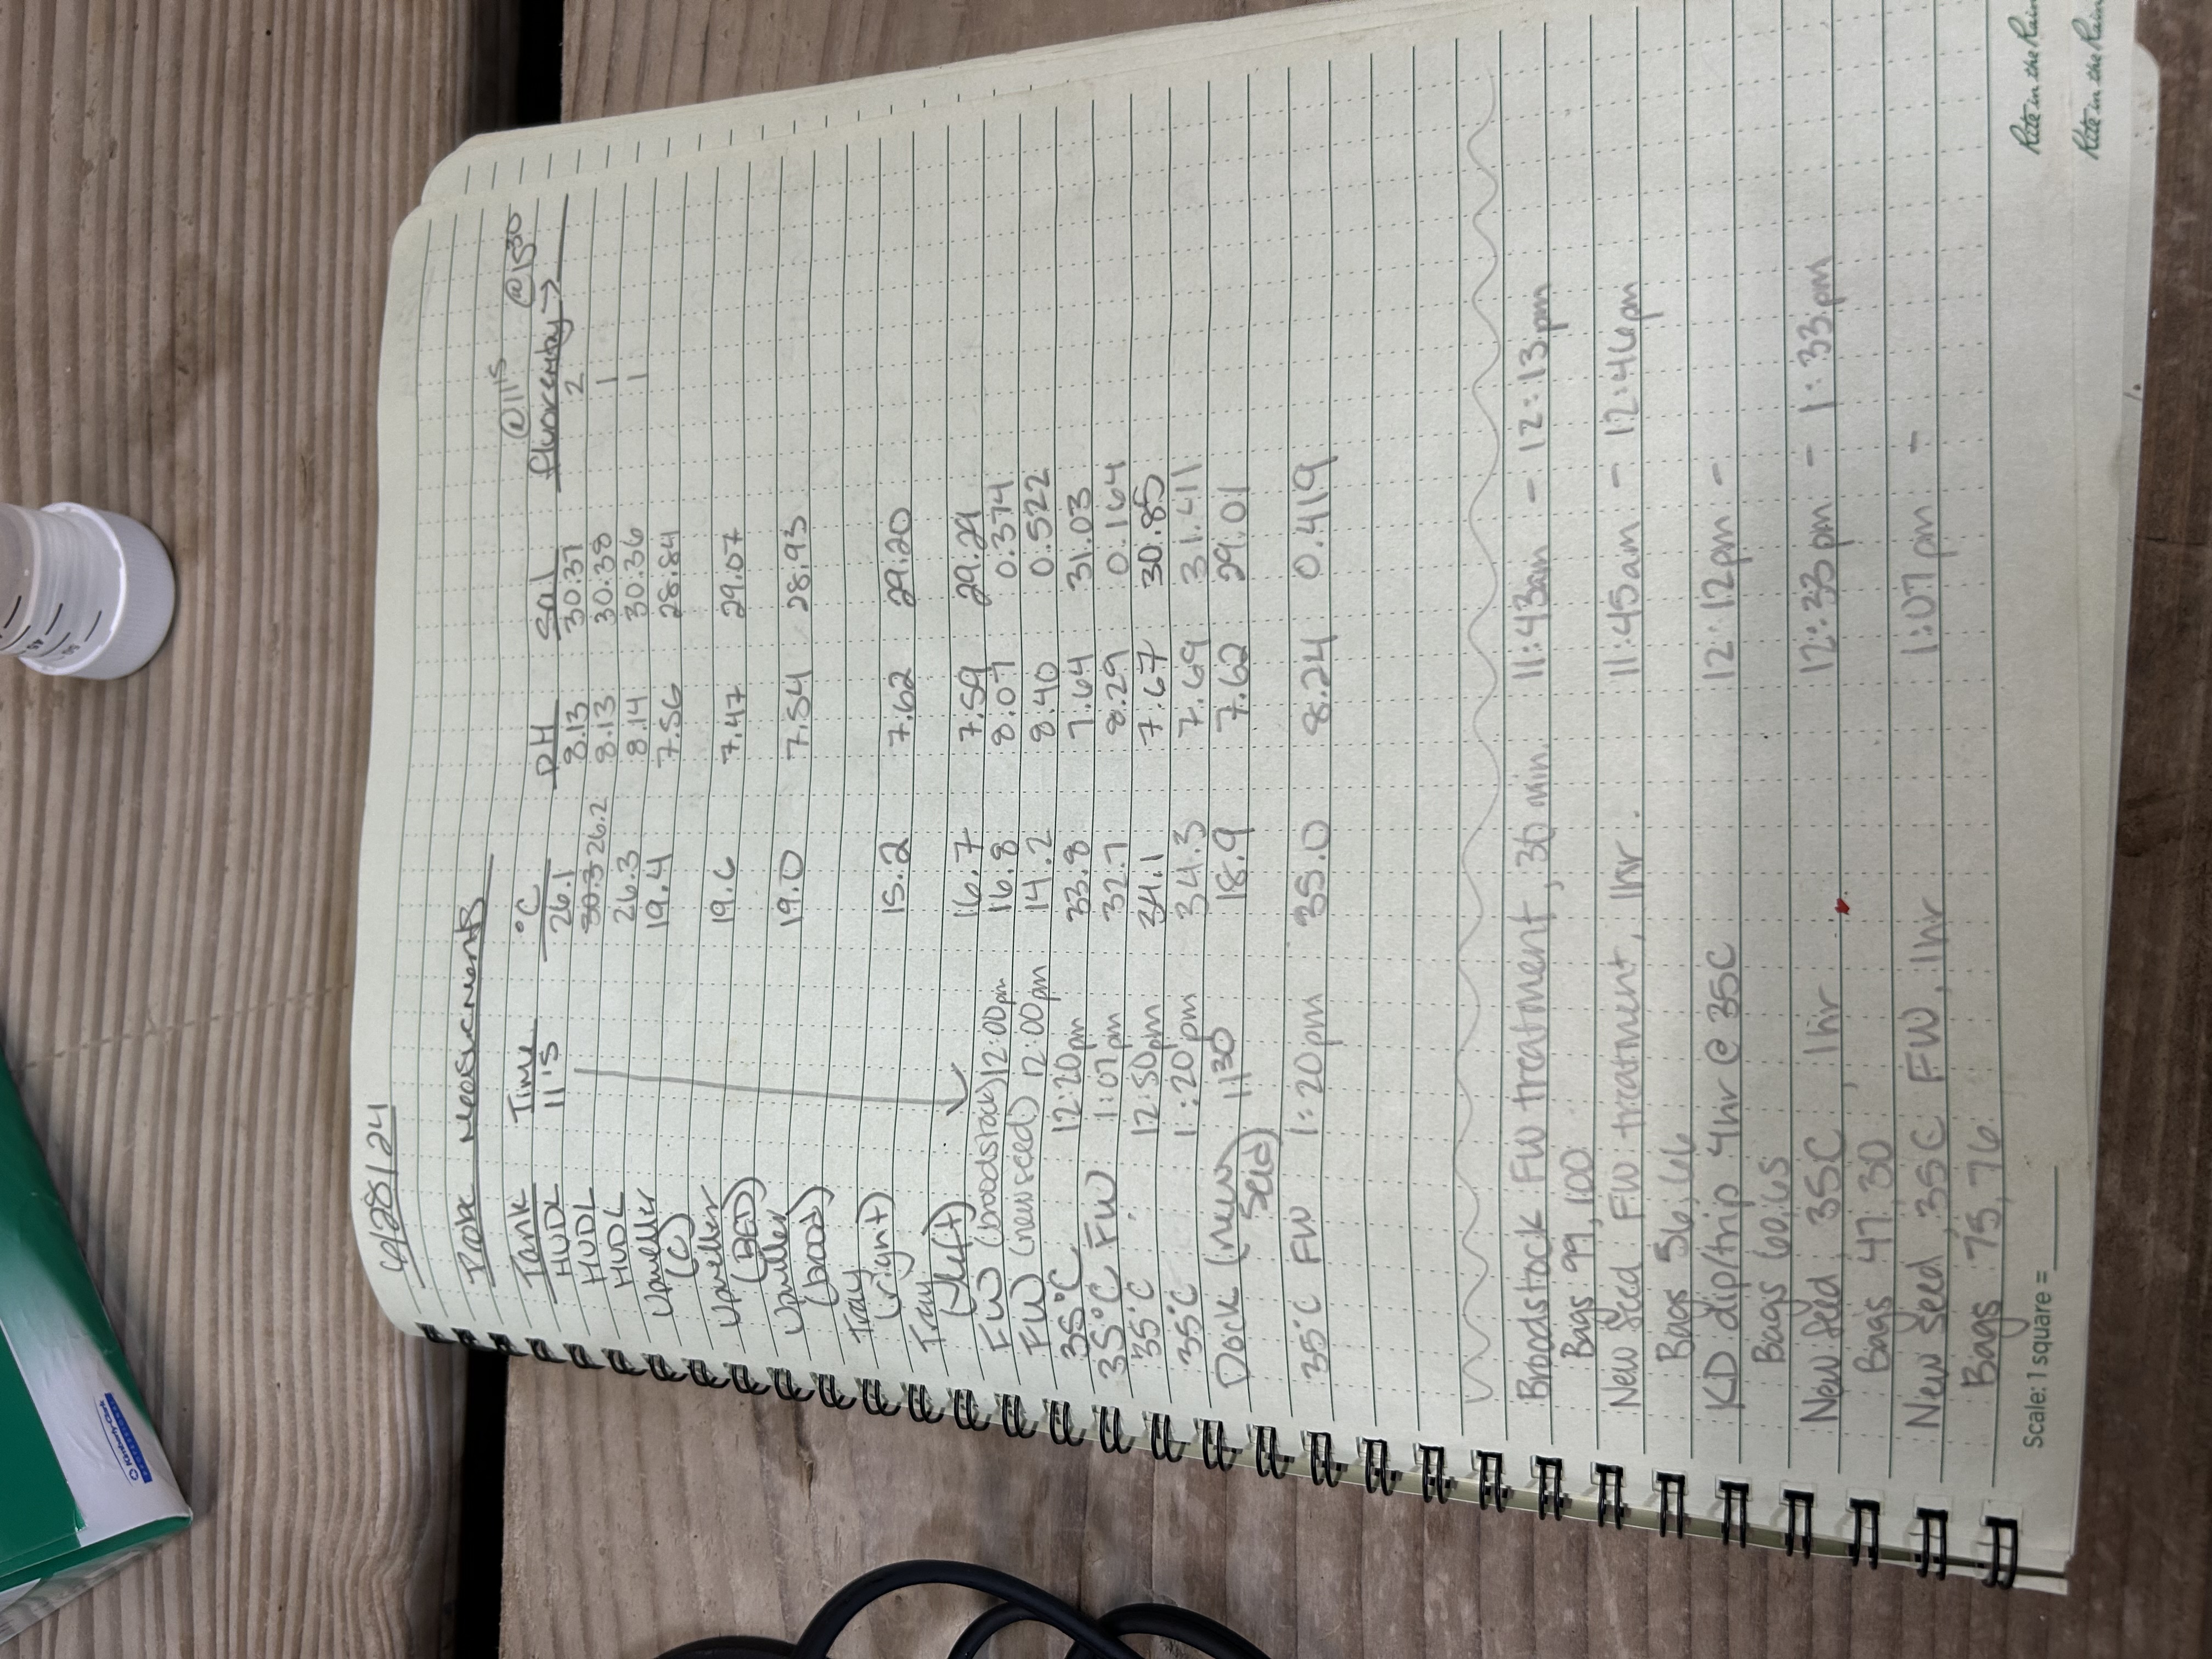 6/28/24
Probe Measurements
@1115 @1530
Tank Time °C pH Sal fluorometry →
HUDL 1115 26.1 8.13 30.37 2
HUDL 30.3 26.2 8.13 30.38 1
HUDL 26.3 8.14 30.36 1
Upweller 19.4 7.56 28.84
(C)
Upweller 19.6 7.47 29.07
(BED)
Upweller 19.0 7.54 28.93
(brood)
Tray 15.2 7.62 29.20
(right)
Tray 16.7 7.59 29.29
(left)
FW (broodstock) 12:00pm 16.8 8.07 0.374
FW (new seed) 12:00pm 14.2 8.40 0.522
35°C 12:20pm 33.8 7.64 31.03
35°C FW 1:07pm 32.7 8.29 0.164
35°C 12:50pm 34.1 7.67 30.85
35°C 1:20pm 34.3 7.69 31.411
Dock (new 1130 18.9 7.62 29.01
seed)
35°C FW 1:20pm 35.0 8.24 0.419
Broodstock FW treatment, 30 min. 11:43am - 12:13pm
Bags 99, 100
New Seed FW treatment, 1hr. 11:45am - 12:46pm
Bags 56, 66
KD dip/trip 4hr @ 35C 12:12pm -
Bags 60, 65
New Seed, 35C, 1hr 12:33pm - 1:33pm
Bags 47, 30
New Seed, 35C FW, 1hr 1:07pm -
Bags 75, 76.
Scale: 1 square =
Rite in the Rain
Rite in the Rain
Kimberly-Clark